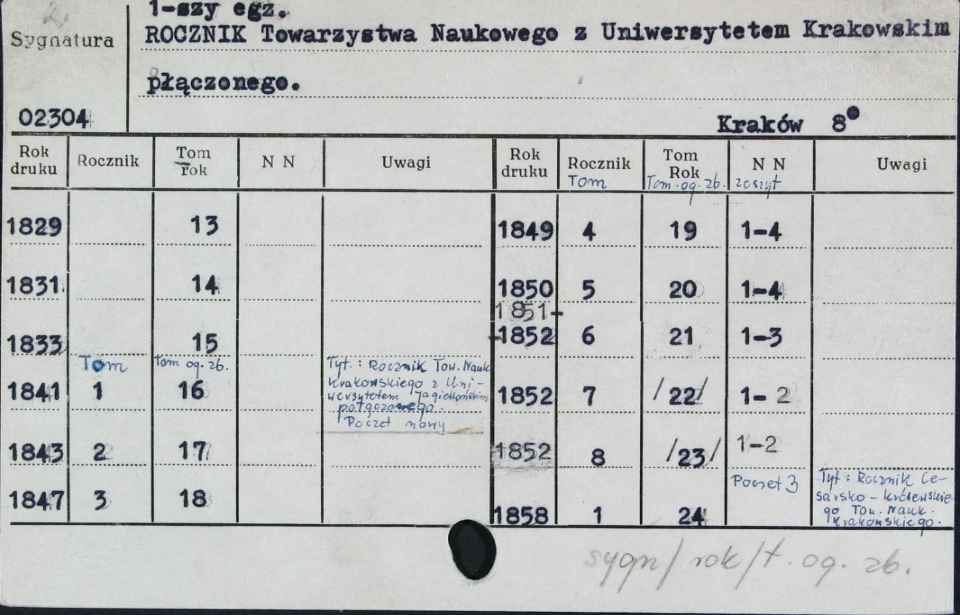 1-szy egz.
Sygnatura
ROCZNIK Towarzystwa Naukowego z Uniwersytetem Krakowskim
płączonego.
02304
Kraków 8°
Rok druku Rocznik Tom rok N N Uwagi
1829 13
1831 14
1833 15
Tom Tom og. zb.
1841 1 16
Tyt.: Rocznik Tow. Nauk.
Krakowskiego z Uni-
wersytetem Jagiellońskim
połączonego.
Poczet nowy
1843 2 17
1847 3 18
Rok druku Rocznik Tom Rok N N Uwagi
Tom Tom. og. zb. zeszyt
1849 4 19 1-4
1850 5 20 1-4
1851-
-1852 6 21 1-3
1852 7 /22/ 1-2
1852 8 /23/ 1-2
Poczet 3
1858 1 24
Tyt: Rocznik Ce-
sarsko-królewskie-
go Tow. Nauk.
Krakowskiego.
sygn/rok/t. og. zb.